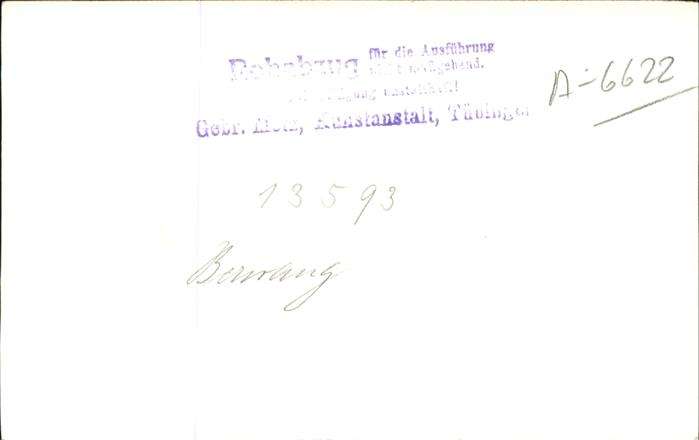 Rohabzug für die Ausführung
nicht maßgebend.
Gebr. Metz, Kunstanstalt, Tübingen
A=6622
13593
Berwang